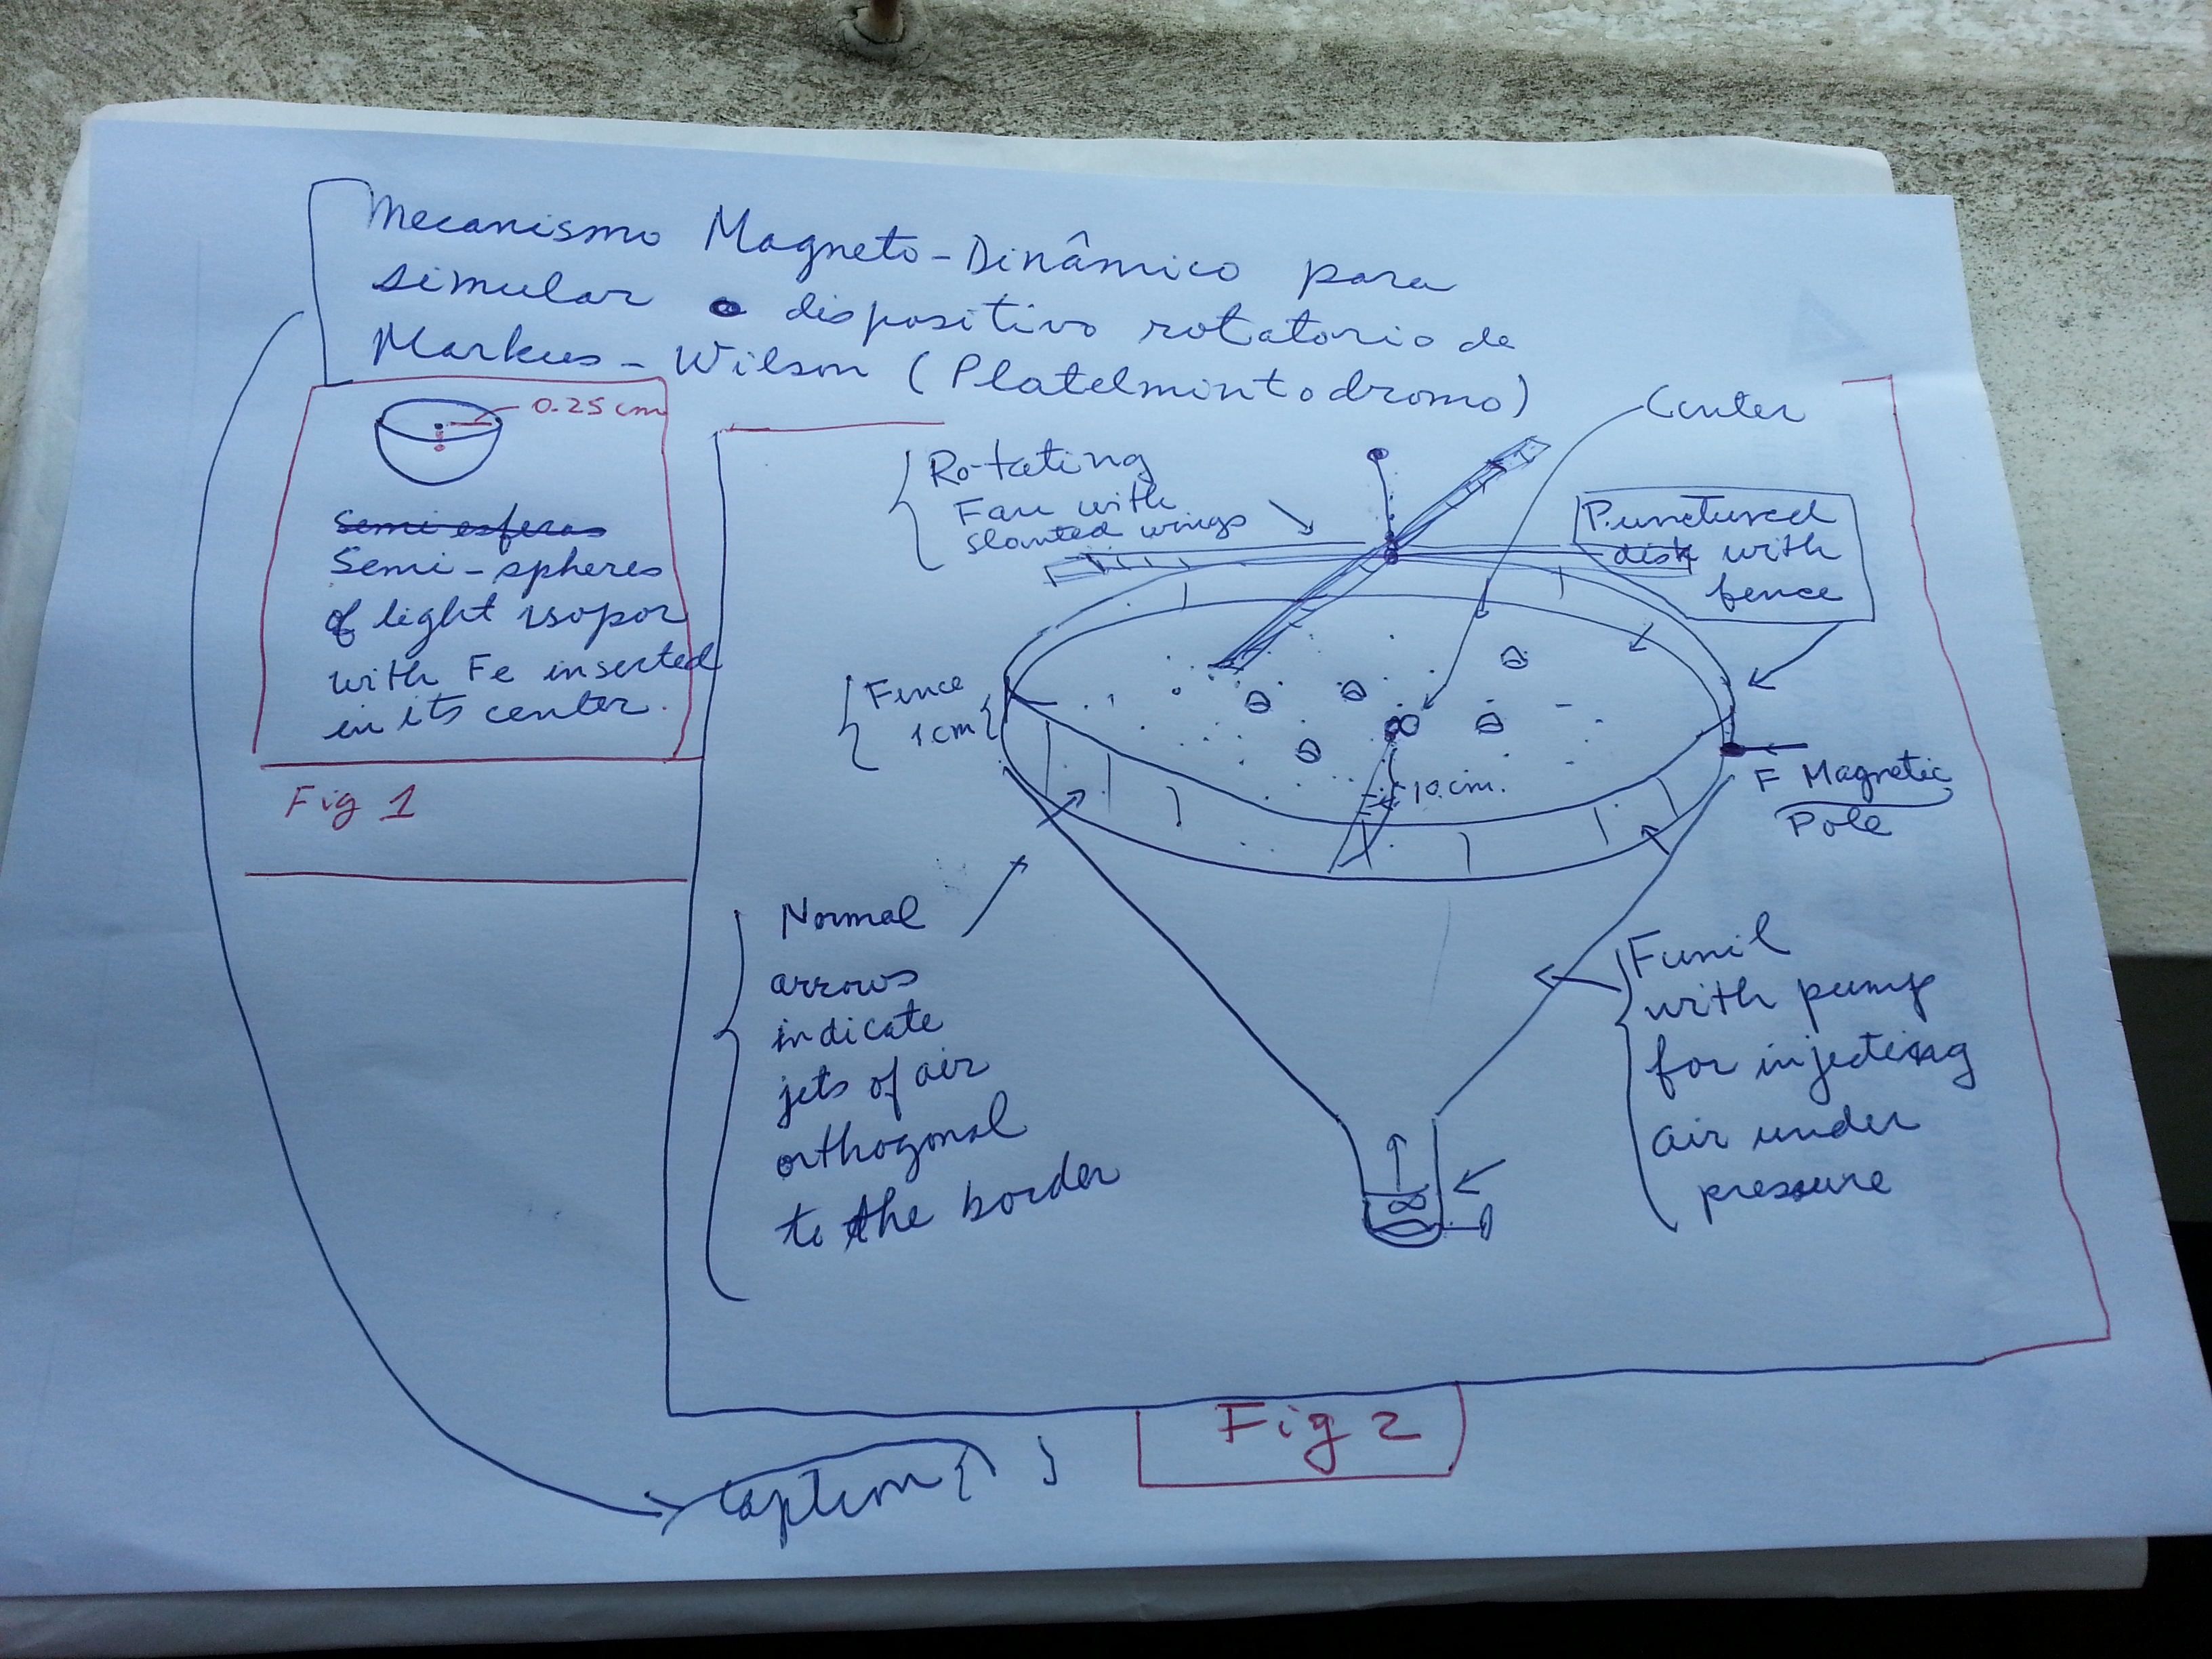 Mecanismo Magneto-Dinâmico para
simular o dispositivo rotatorio de
Markus-Wilson (Platelmintodromo)
0.25 cm
Semi esferas
Semi-spheres
of light isopor
with Fe inserted
in its center.
Fig 1
Center
Rotating
Fan with
slanted wings
Punctured
disk with
fence
Fence
1cm
10cm.
F Magnetic
Pole
Normal
arrows
indicate
jets of air
orthogonal
to the border
Funil
with pump
for injecting
air under
pressure
Fig 2
Caption { }